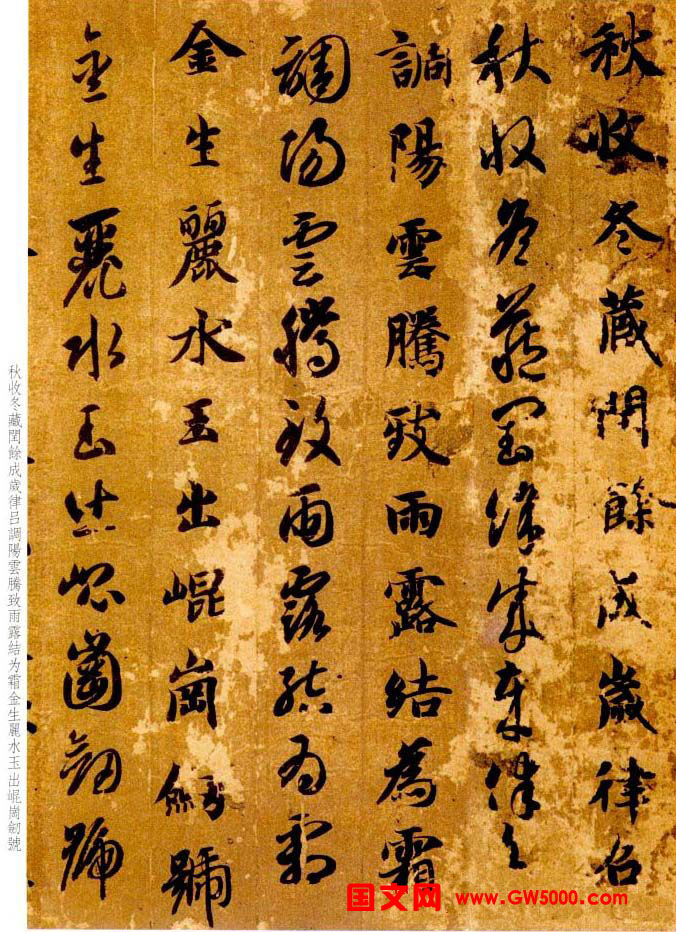 秋收冬藏閏餘成歲律呂
秋收冬藏閏餘成歲律呂
調陽雲騰致雨露結為霜
調陽雲騰致雨露結為霜
金生麗水玉出崐崗劒號
金生麗水玉出崐崗劒號
秋收冬藏閏餘成歲律呂調陽雲騰致雨露结为霜金生麗水玉出崐崗劒號
国文网 www.GW5000.com